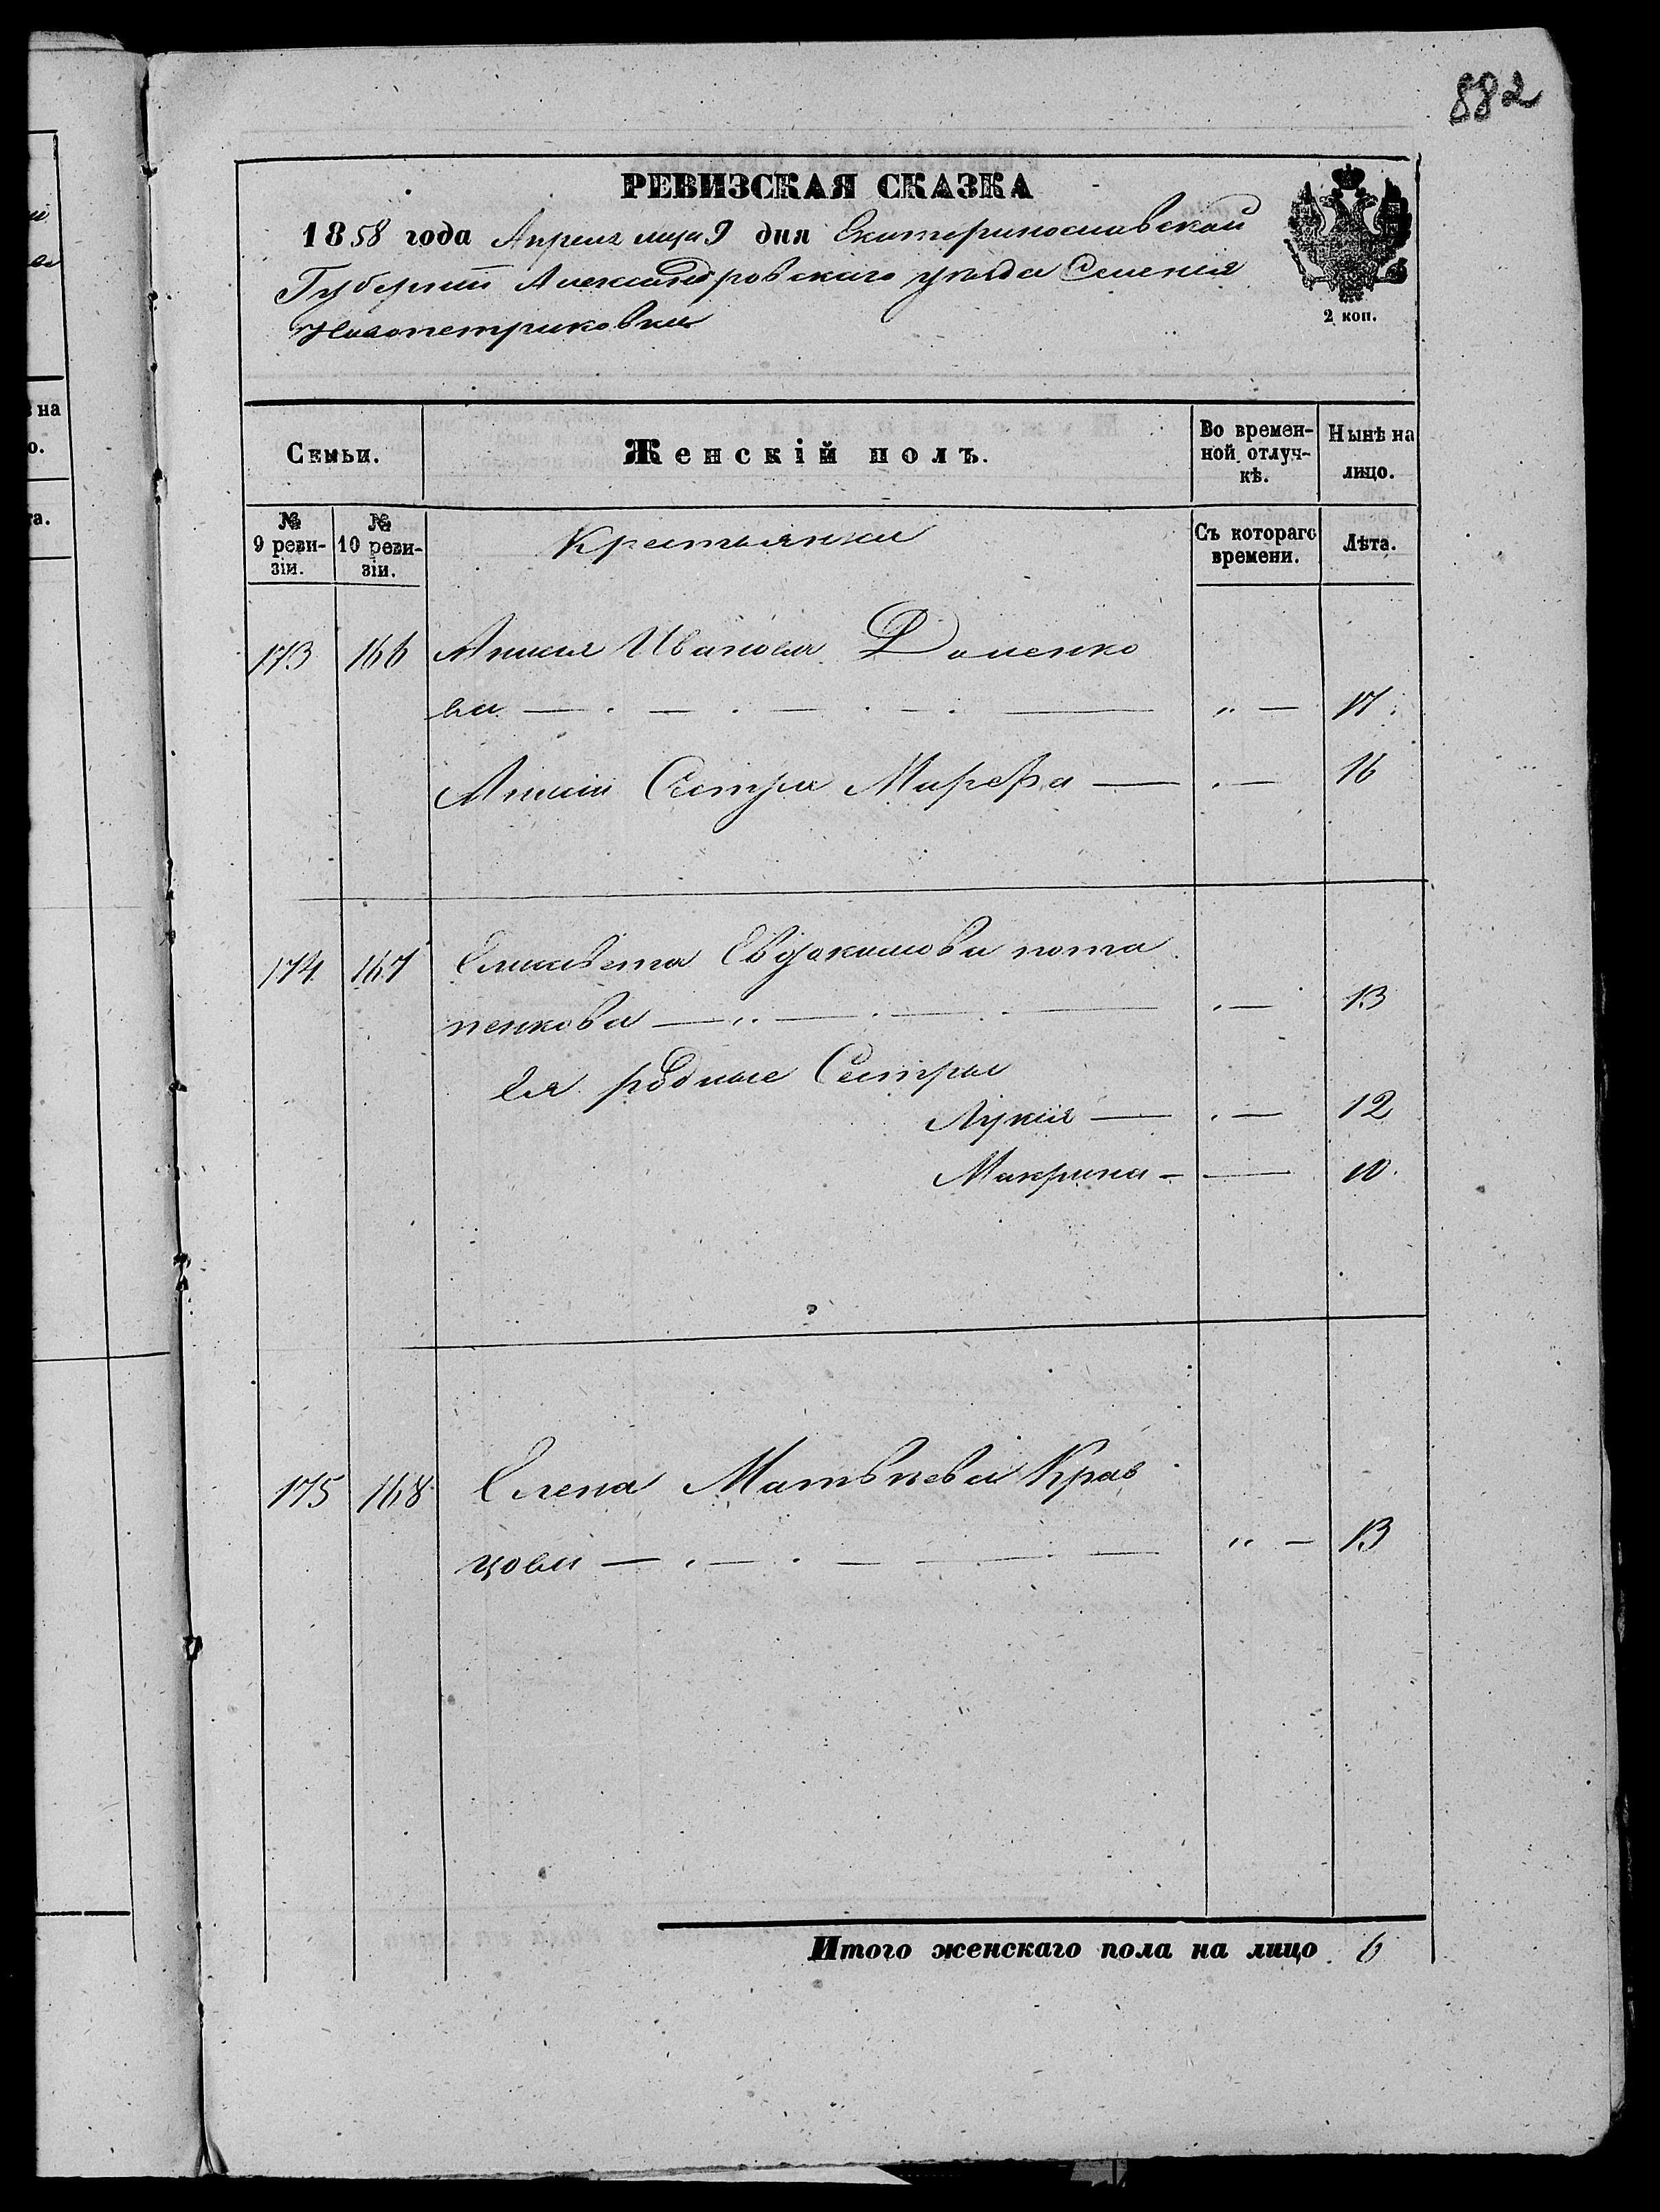 882
РЕВИЗСКАЯ СКАЗКА
1858 года Апреля мца 9 дня Екатеринославской
Губерніи Александровскаго уѣзда Селенія
Новопетриковки
2 коп.
Семьи. Женскій полъ. Во времен-ной отлуч-кѣ. Нынѣ на лицо.
№ 9 реви-зіи. № 10 реви-зіи. Крестьянки Съ котораго времени. Лѣта.
173 166 Анисія Иванова Доленко
ва — . — . — . — . — „ — 17
Анисіи Сестра Марефа — . — 16
174 167 Елисавета Евдокимова пота
пенкова — „ . — . — . — . — 13
Ея родные Сестры
Лукія — . — 12
Макрина — — 10.
175 168 Елена Матвѣева Крав
цова — . — . — — . — „ — 13
Итого женскаго пола на лицо 6
на
о.
та.